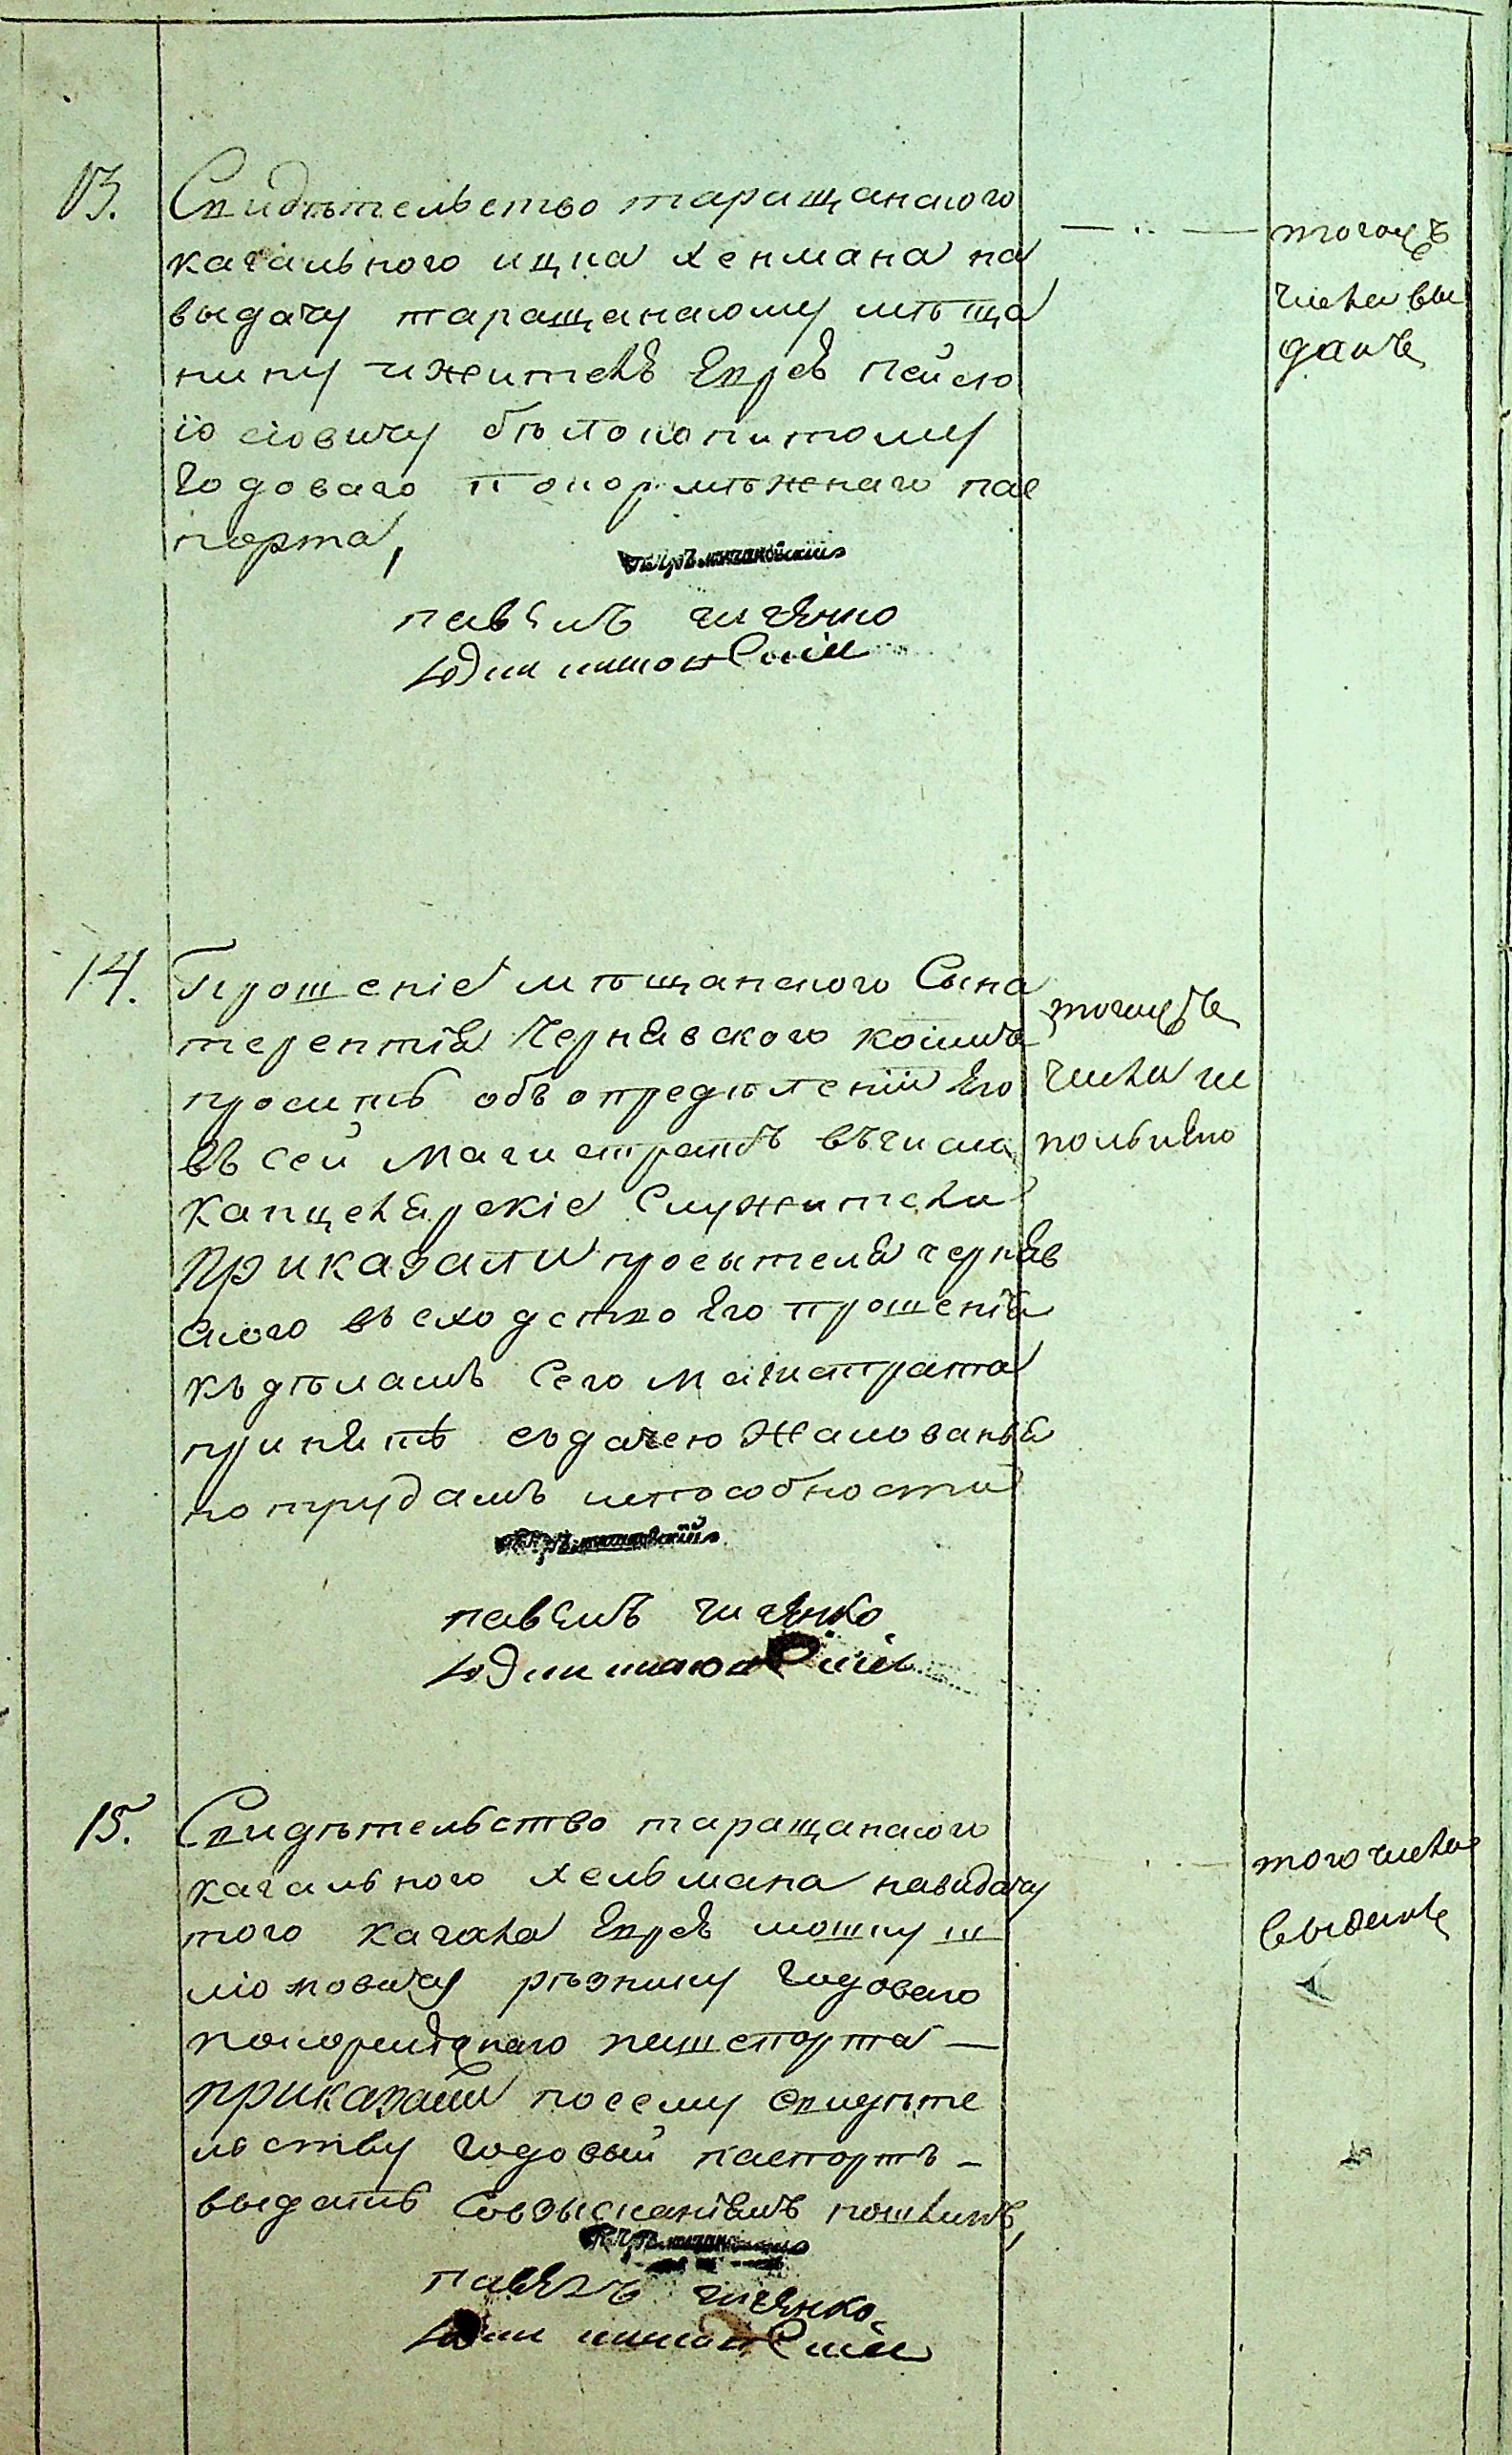 13.
Свидѣтельство таращанского
кагального ицка хелмана на
выдачу таращанскому мѣща
нину и жителѣ Еврею пейсю
іосіовичу бѣлокопитому
Годоваго покормѣжнаго пас
порта,
павелъ чиченко
того жъ
числа вы
данъ
14.
Прошеніе мѣщанского Сына
терентія Чернявского коимъ
просить объ опредѣленіи Его
въ сей магистратъ въ числа
канцелярскіе Служители
приказали просытеля черняв
ского въ сходство Его прошенія
къ дѣламъ Сего магистрата
принять съ дачею жалованья
по трудамъ и способности
павелъ чиченко
того жъ
числа и
полънено
15.
Свидѣтельство таращанского
кагального хельмана на видачу
того кагала Еврею мошку ш
ліомовичу рѣзнику годоваго
покормежнаго пашепорта —
приказали по сему свидѣте
льству годовый паспортъ –
выдать Совзысканіемъ пошлинъ,
павелъ чиченко
того числа
выданъ